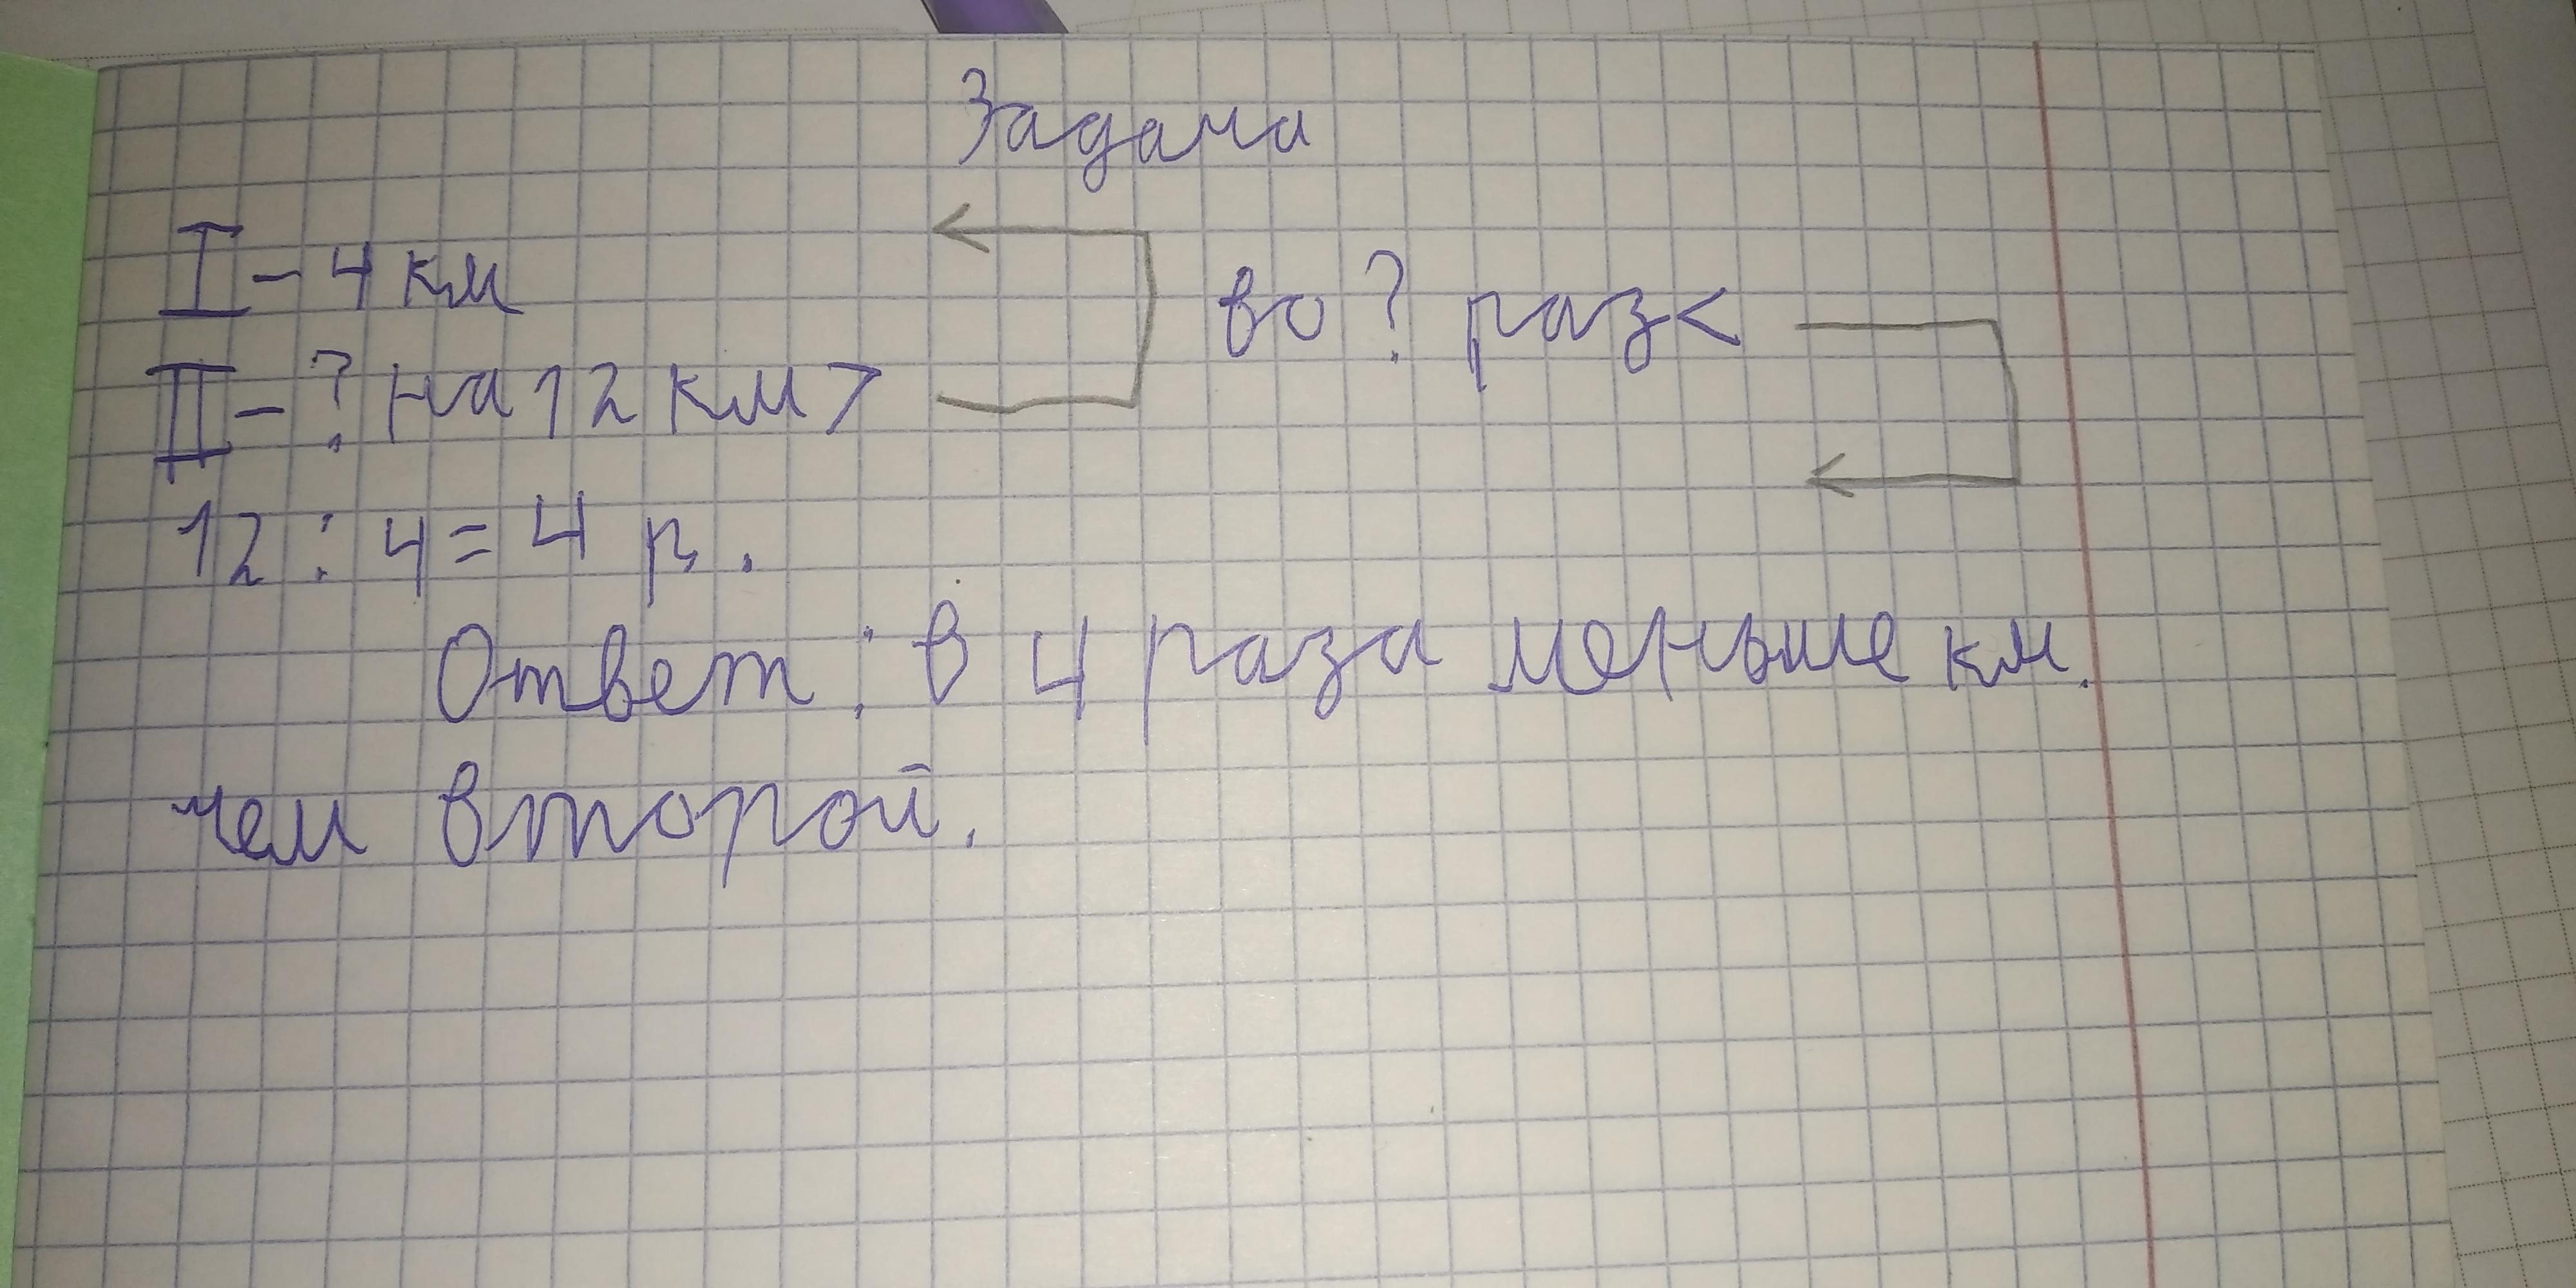 Задача
I - 4 км
во ? раз <
II - ? на 12 км >
12 : 4 = 4 р.
Ответ : в 4 раза меньше км.
чем второй.